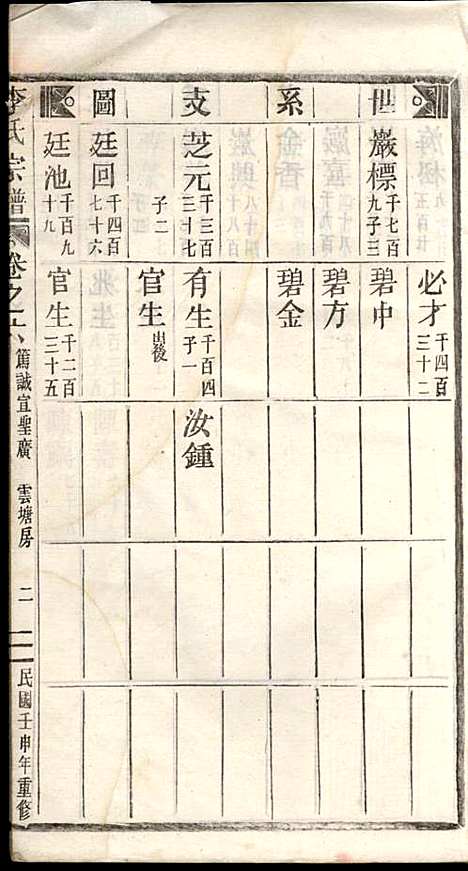 世系支圖
必才 千四百三十二
巖標 千七百九 子三
碧中
碧方
碧金
芝元 千三百三十七 子二
有生 千百四 子一
汝鍾
官生 出後
廷回 千四百七十六
廷池 千百九十九
官生 千二百三十五
李氏宗譜
卷之六
篤誠宜聖廣 雲塘房 二
民國壬申年重修